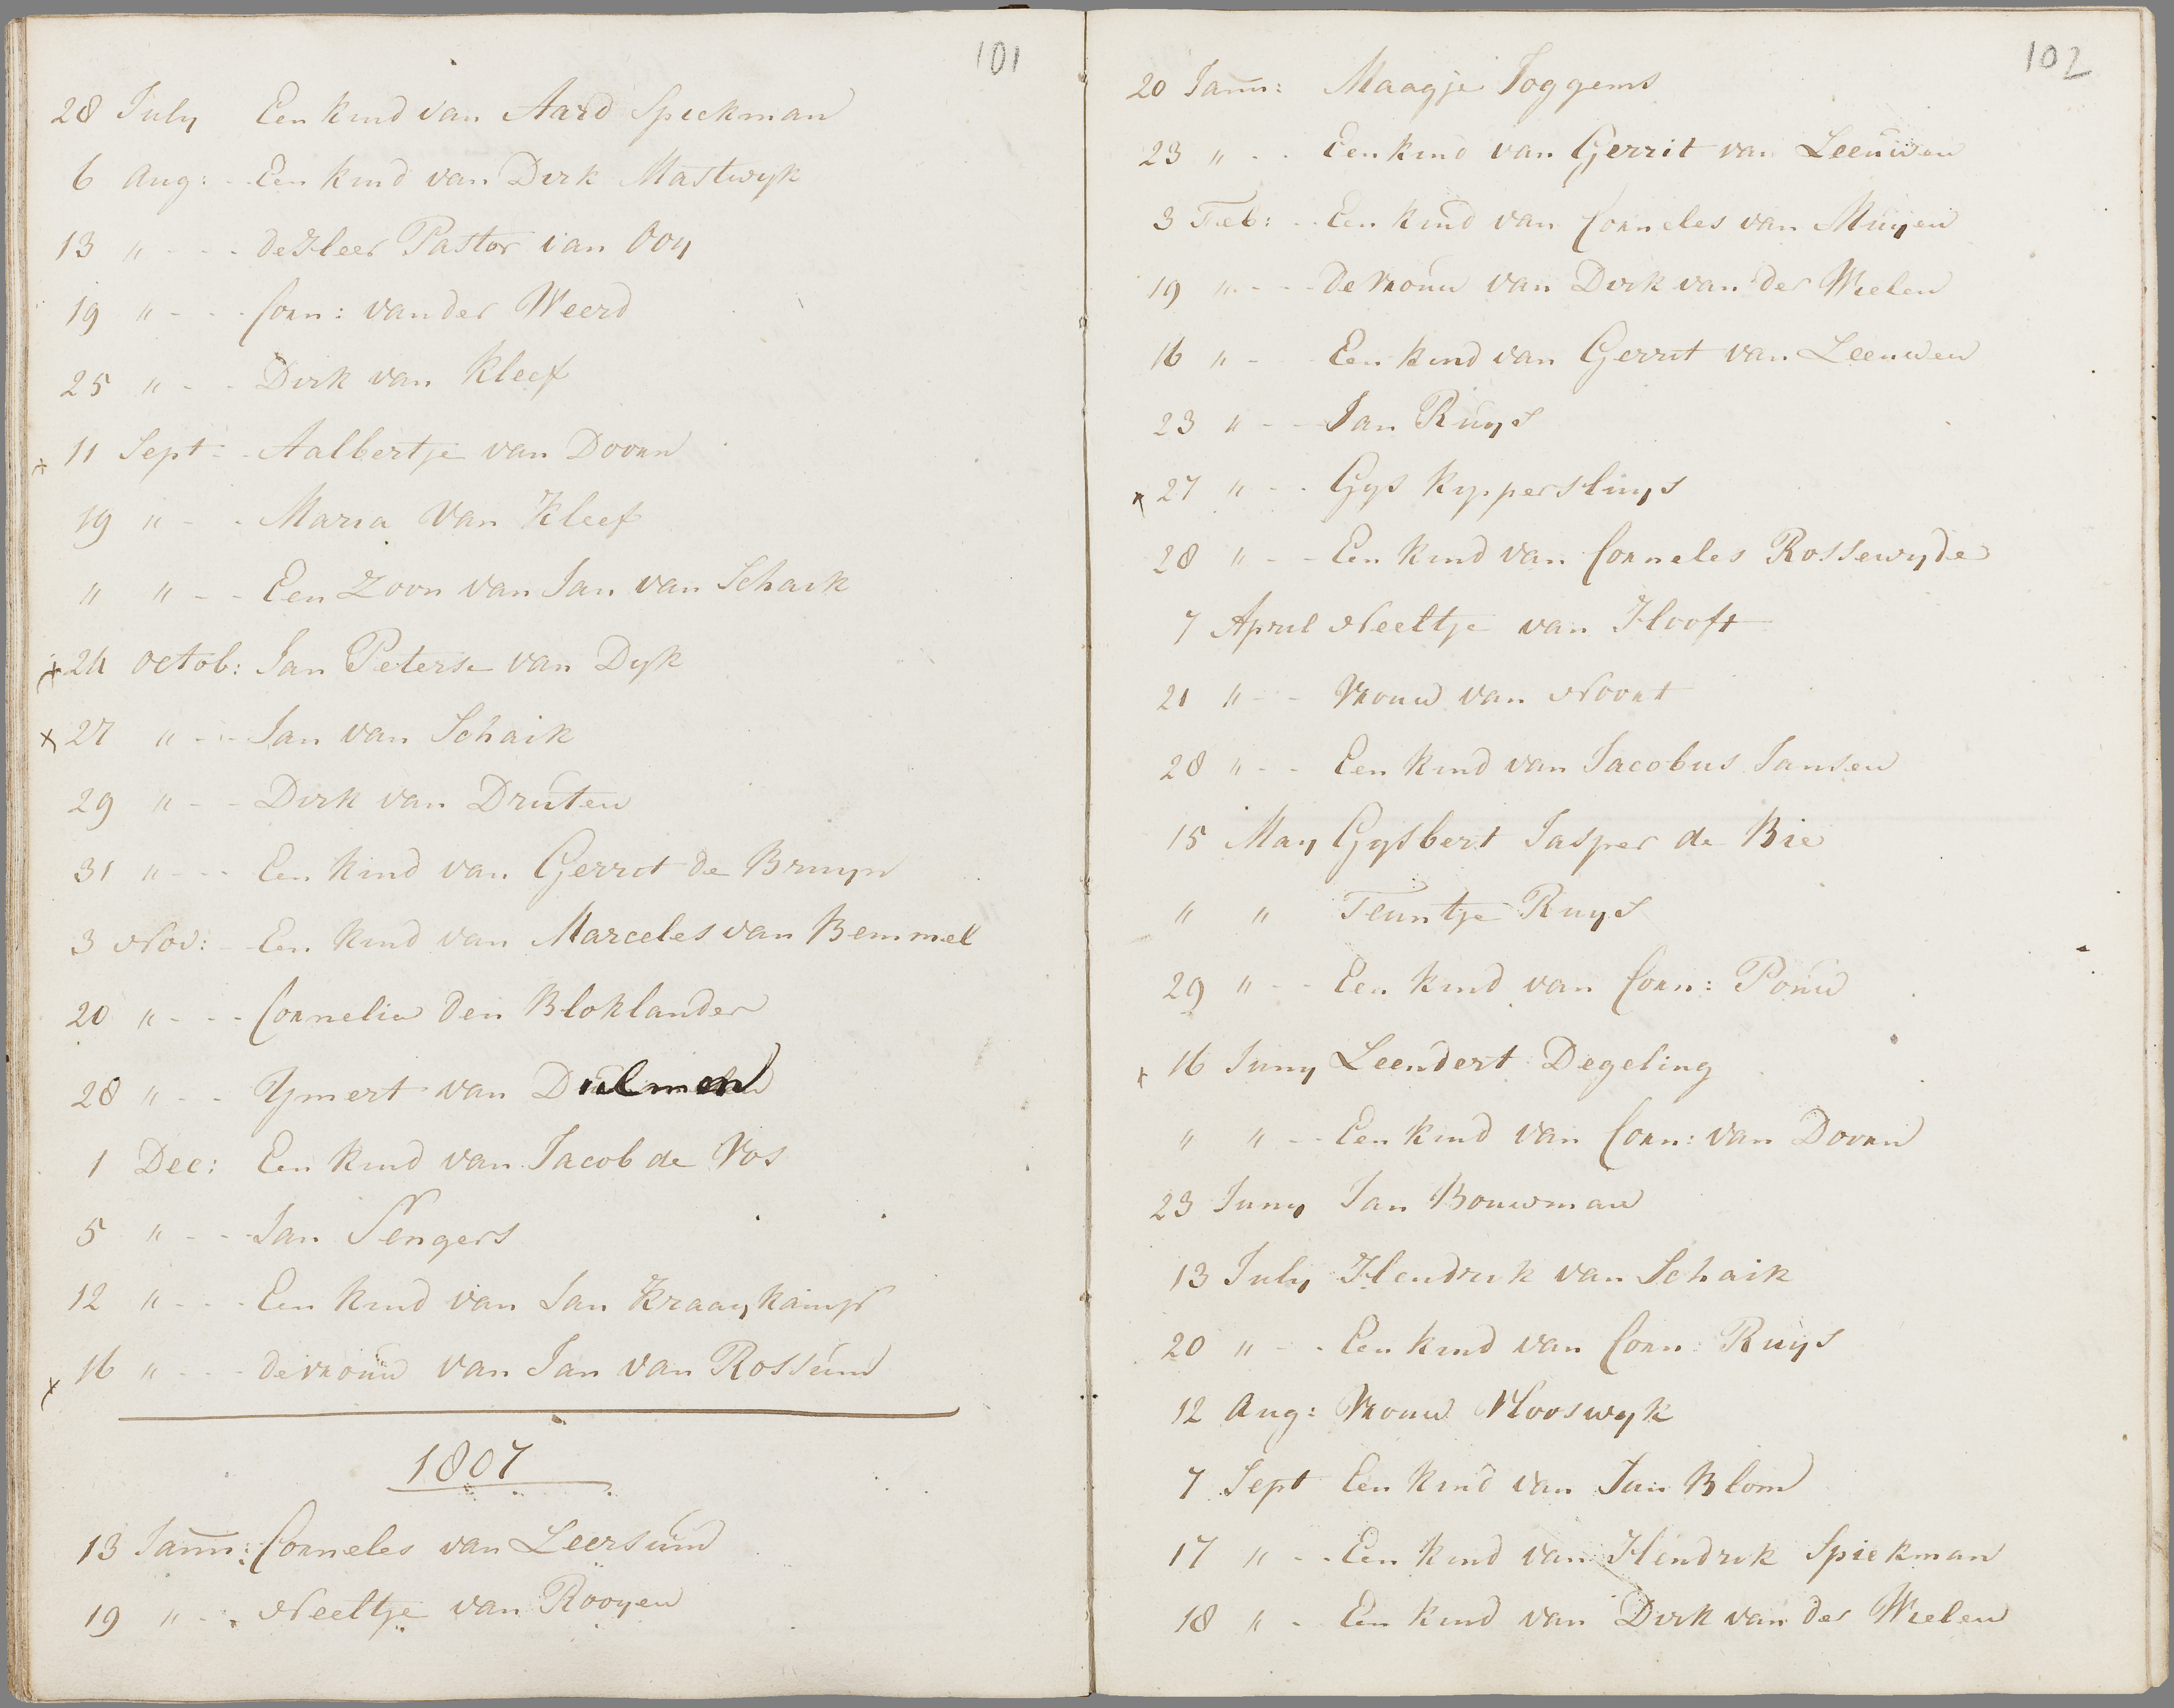 101
28 July Een kind van Aard Spiekman
6 Aug: - Een kind van Dirk Mastwyk
13 " - - - de Heer Pastor van Ooy
19 " - - - Corn: van der Weerd
25 " - - Dirk van Kleef
x 11 Sept - - Aalbertje van Doorn
19 " - - Maria van Kleef
" " - - Een Zoon van Jan van Schaik
x 24 Octob: Jan Peterse van Dyk
x 27 " - - Jan van Schaik
29 " - - Dirk van Druten
31 " - - - Een kind van Gerrit de Bruyn
3 Nov: - Een kind van Marceles van Bemmel
20 " - - - Cornelia den Bloklander
28 " - - Ymert van Dulmen
1 Dec: Een kind van Jacob de Vos
5 " - - Jan Sengers
12 " - - - Een kind van Jan Kraaykamp
x 16 " - - - de vrouw van Jan van Rossum
1807
13 Jann: Corneles van Leersum
19 " - - Neeltje van Rooyen
102
20 Jann: Maagje Joggems
23 " - - Een kind van Gerrit van Leeuwen
3 Feb: - - Een kind van Corneles van Muyen
19 " - - - de Vrouw van Dirk van der Wielen
16 " - Een kind van Gerrit van Leeuwen
23 " - - Jan Ruys
x 27 " - - Gys Kypperslings
28 " - - Een kind van Corneles Rossewyde
7 April Neeltje van Hooft
21 " - - Vrouw van Noort
28 " - - Een kind van Jacobus Jansen
15 May Gysbert Jasper de Bie
" " Teuntje Ruys
29 " - - Een kind van Corn: Pouw
x 16 Juny Leendert Degeling
" " - - Een kind van Corn: van Doorn
23 Juny Jan Bouwman
13 July Hendrik van Schaik
20 " - - Een kind van Corn: Ruys
12 Aug: Vrouw Vlooswyk
7 Sept Een kind van Jan Blom
17 " - - Een kind van Hendrik Spiekman
18 " - Een kind van Dirk van der Wielen